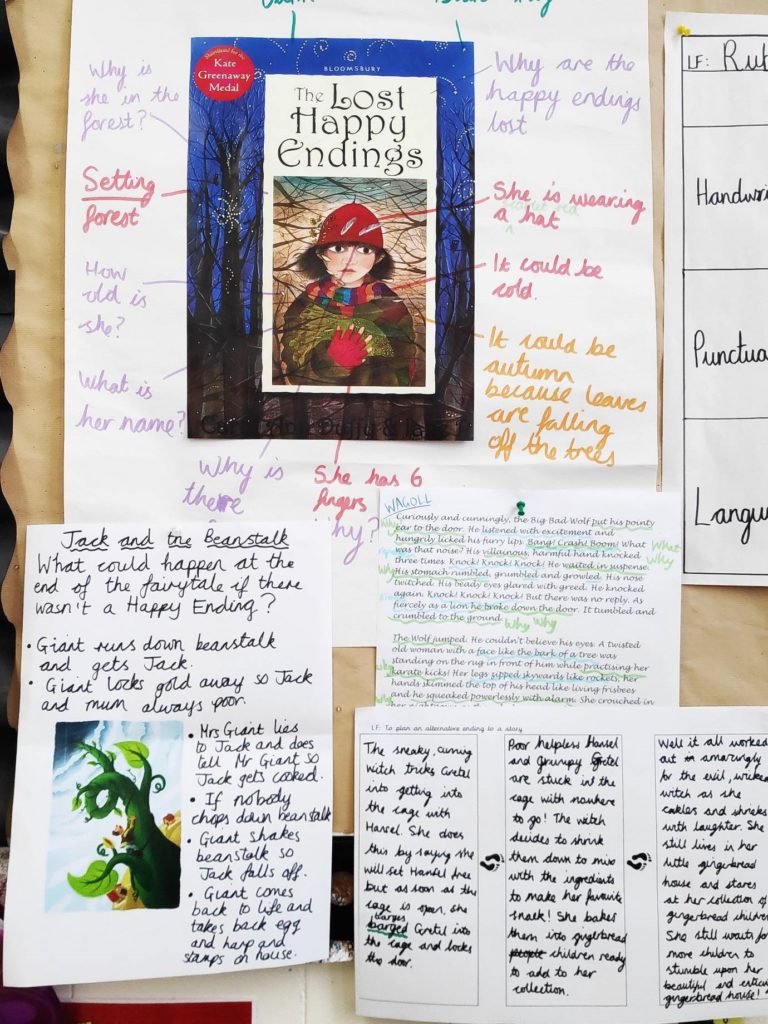 Why is
she in the
forest?
Setting
forest
How
old is
she?
What is
her name?
Why is
there
Shortlisted for the
Kate
Greenaway
Medal
BLOOMSBURY
The Lost
Happy
Endings
Why are the
happy endings
lost
She is wearing
red
a hat
It could be
cold.
It could be
autumn
because leaves
are falling
off the trees
She has 6
fingers
Why?
LF:
Jack and the Beanstalk
What could happen at the
end of the fairytale if there
wasn't a Happy Ending?
• Giant runs down beanstalk
and gets Jack.
• Giant locks gold away so Jack
and mum always poor.
• Mrs Giant lies
to Jack and does
tell Mr Giant so
Jack gets cooked.
• If nobody
chops down beanstalk
• Giant shakes
beanstalk so
Jack falls off.
• Giant comes
back to life and
takes back egg
and harp and
stamps on house.
WAGOLL
Curiously and cunningly, the Big Bad Wolf put his pointy
ear to the door. He listened with excitement and
hungrily licked his furry lips. Bang! Crash! Boom! What
was that noise? His villainous, harmful hand knocked
three times. Knock! Knock! Knock! He waited in suspense.
His stomach rumbled, grumbled and growled. His nose
twitched. His beady eyes glared with greed. He knocked
again. Knock! Knock! Knock! But there was no reply. As
fiercely as a lion he broke down the door. It tumbled and
crumbled to the ground.
Why Why
What
Why
The Wolf jumped. He couldn't believe his eyes. A twisted
old woman with a face like the bark of a tree was
standing on the rug in front of him while practising her
karate kicks! Her legs spiked skywards like rockets, her
hands skimmed the top of his head like living frisbees
and he squeaked powerlessly with alarm. She crouched in
LF: To plan an alternative ending to a story
The sneaky, cunning
witch tricks Gretel
into getting into
the cage with
Hansel. She does
this by saying she
will set Hansel free
but as soon as the
cage is open, she
barges
barged Gretel into
the cage and locks
the door.
Poor helpless Hansel
and Grumpy Gretel
are stuck in the
cage with nowhere
to go! The witch
decides to shrink
them down to mix
with the ingredients
to make her favourite
snack! She bakes
them into gingerbread
people children ready
to add to her
collection.
Well it all worked
out amazingly
for the evil, wicked
witch as she
cakles and shrieks
with laughter. She
still lives in her
little gingerbread
house and stares
at her collection of
gingerbread children
She still waits for
more children to
stumble upon her
beautiful and enticing
gingerbread house!